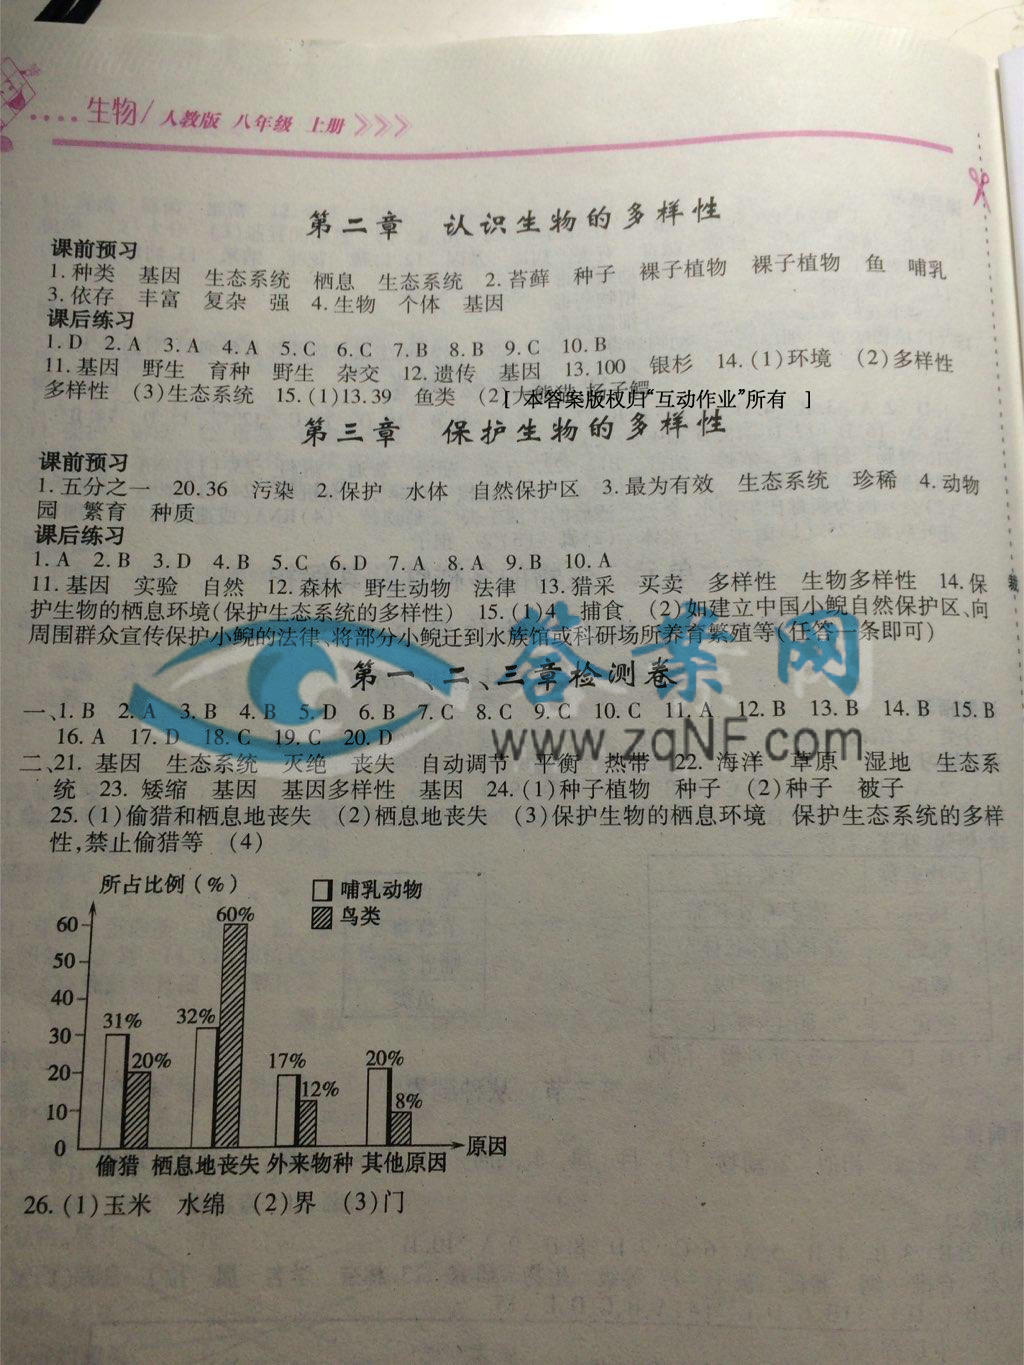 生物/人教版 八年级 上册>>>
第二章 认识生物的多样性
课前预习
1.种类 基因 生态系统 栖息 生态系统 2.苔藓 种子 裸子植物 裸子植物 鱼 哺乳
3.依存 丰富 复杂 强 4.生物 个体 基因
课后练习
1.D 2.A 3.A 4.A 5.C 6.C 7.B 8.B 9.C 10.B
11.基因 野生 育种 野生 杂交 12.遗传 基因 13.100 银杉 14.(1)环境 (2)多样性
多样性 (3)生态系统 15.(1)13.39 鱼类 (2)大熊猫 扬子鳄
[ 本答案版权归“互动作业”所有 ]
第三章 保护生物的多样性
课前预习
1.五分之一 20.36 污染 2.保护 水体 自然保护区 3.最为有效 生态系统 珍稀 4.动物
园 繁育 种质
课后练习
1.A 2.B 3.D 4.B 5.C 6.D 7.A 8.A 9.B 10.A
11.基因 实验 自然 12.森林 野生动物 法律 13.猎采 买卖 多样性 生物多样性 14.保
护生物的栖息环境(保护生态系统的多样性) 15.(1)4 捕食 (2)如建立中国小鲵自然保护区、向
周围群众宣传保护小鲵的法律、将部分小鲵迁到水族馆或科研场所养育繁殖等(任答一条即可)
答案网
www.zqNF.com
第一、二、三章检测卷
一、1.B 2.A 3.B 4.B 5.D 6.B 7.C 8.C 9.C 10.C 11.A 12.B 13.B 14.B 15.B
16.A 17.D 18.C 19.C 20.D
二、21. 基因 生态系统 灭绝 丧失 自动调节 平衡 热带 22. 海洋 草原 湿地 生态系
统 23. 矮缩 基因 基因多样性 基因 24.(1)种子植物 种子 (2)种子 被子
25.(1)偷猎和栖息地丧失 (2)栖息地丧失 (3)保护生物的栖息环境 保护生态系统的多样
性,禁止偷猎等 (4)
所占比例(%)
哺乳动物
鸟类
60
50
40
30
20
10
0
31%
20%
32%
60%
17%
12%
20%
8%
偷猎 栖息地丧失 外来物种 其他原因
原因
26.(1)玉米 水绵 (2)界 (3)门